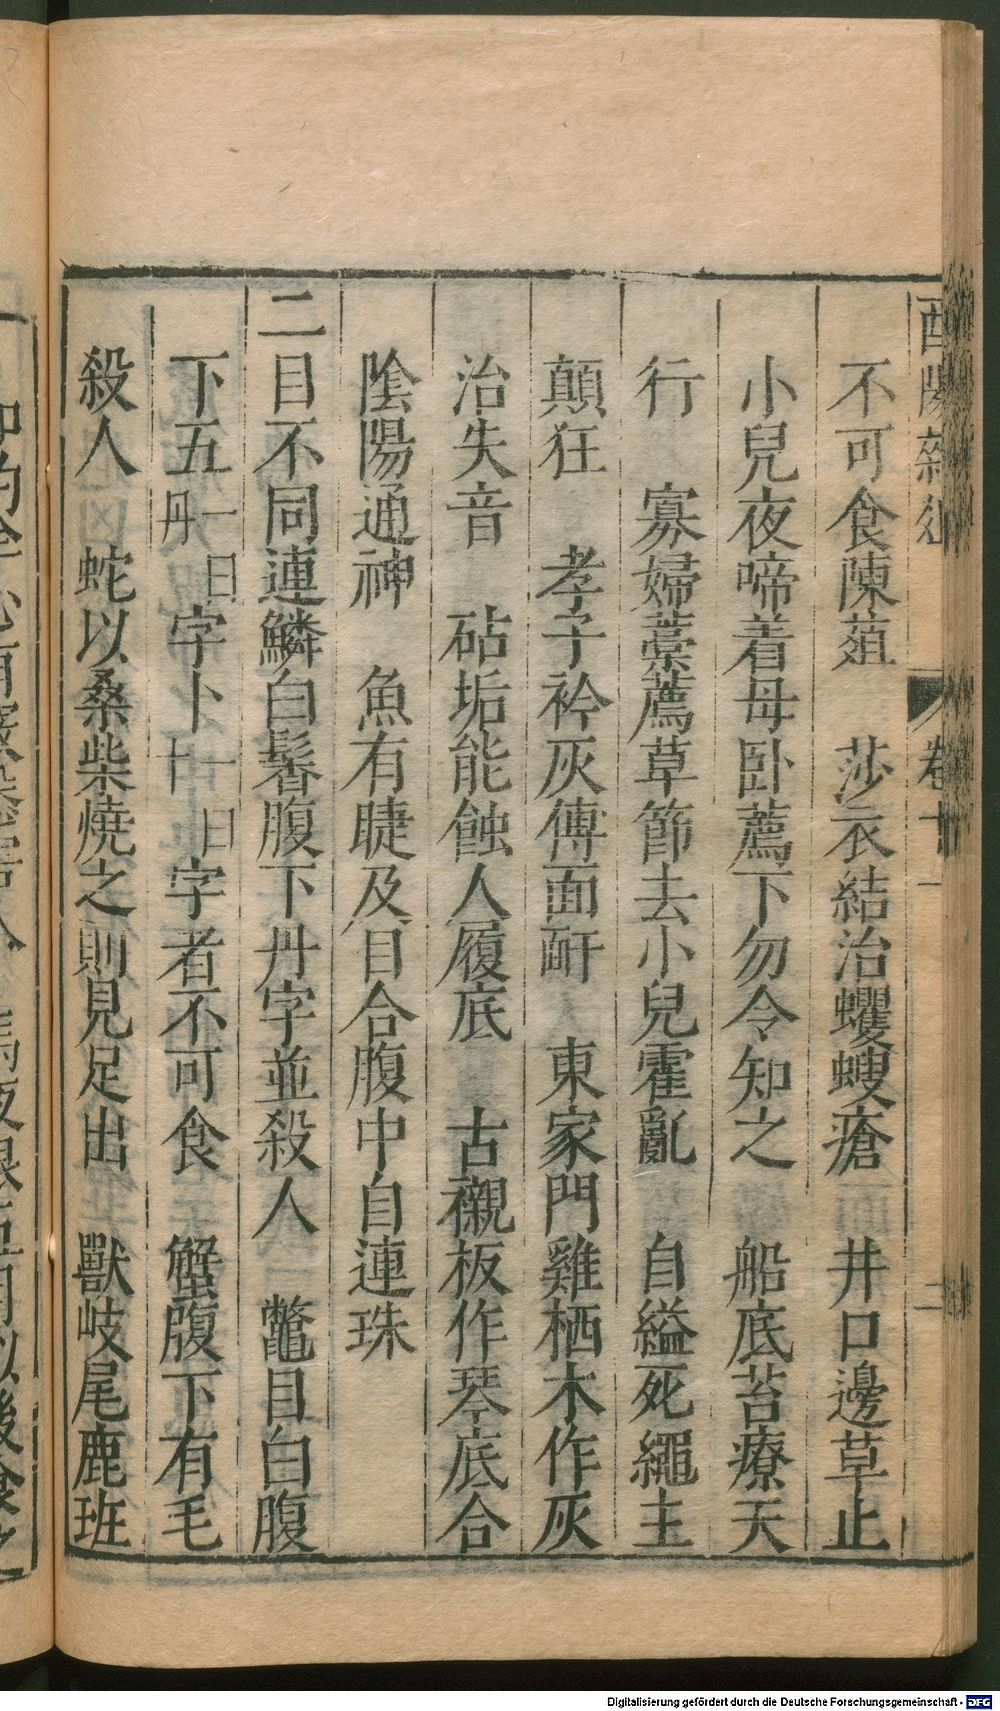 酉陽雜俎 卷十一 二
不可食陳葅　莎衣結治蠼螋瘡　井口邊草止
小兒夜啼着母臥薦下勿令知之　船底苔療天
行　寡婦藁薦草節去小兒霍亂　自縊死繩主
顛狂　孝子衿灰傅面皯　東家門雞栖木作灰
治失音　砧垢能蝕人履底　古襯板作琴底合
陰陽通神　魚有睫及目合腹中自連珠
二目不同連鱗白鬐腹下丹字並殺人　鼈目白腹
下五一曰丹字卜一曰十字者不可食　蟹腹下有毛
殺人　蛇以桑柴燒之則見足出　獸岐尾鹿班
Digitalisierung gefördert durch die Deutsche Forschungsgemeinschaft - DFG